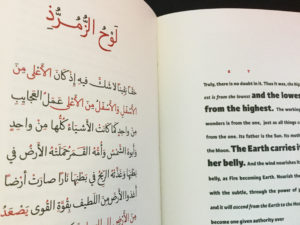 لَوْحُ الزُّمُرُّذِ
حَقًّا يَقِينًا لَا شَكَّ فِيهِ إِذْ كَانَ الْأَعْلَى مِنَ
الْأَسْفَلِ وَالْأَسْفَلُ مِنَ الْأَعْلَى عَمَلُ الْعَجَايِبِ
مِنْ وَاحِدٍ كَمَا كَانَتِ الْأَشْيَاءُ كُلُّهَا مِنْ وَاحِدٍ
وَأَبُوهُ الشَّمْسُ وَأُمُّهُ الْقَمَرُ حَمَلَتْهُ الْأَرْضُ فِي
بَطْنِهَا وَغَذَّتْهُ الرِّيحُ فِي بَطْنِهَا نَارًا صَارَتْ أَرْضًا
أَغْذُوا الْأَرْضَ مِنَ اللَّطِيفِ بِقُوَّةِ الْقُوَى يَصْعَدُ
مِنَ الْأَرْضِ
Truly, there is no doubt in it. Thus it was, the
est is from the lowest and the lowe
from the highest. The working
wonders is from one, just as all things
from the one. Its father is the Sun, its moth
the Moon. The Earth carries i
her belly. And the wind nourishe
belly, as Fire becoming Earth. Nourish the
with the subtle, through the power of
and it will ascend from the Earth to the
become one given authority over